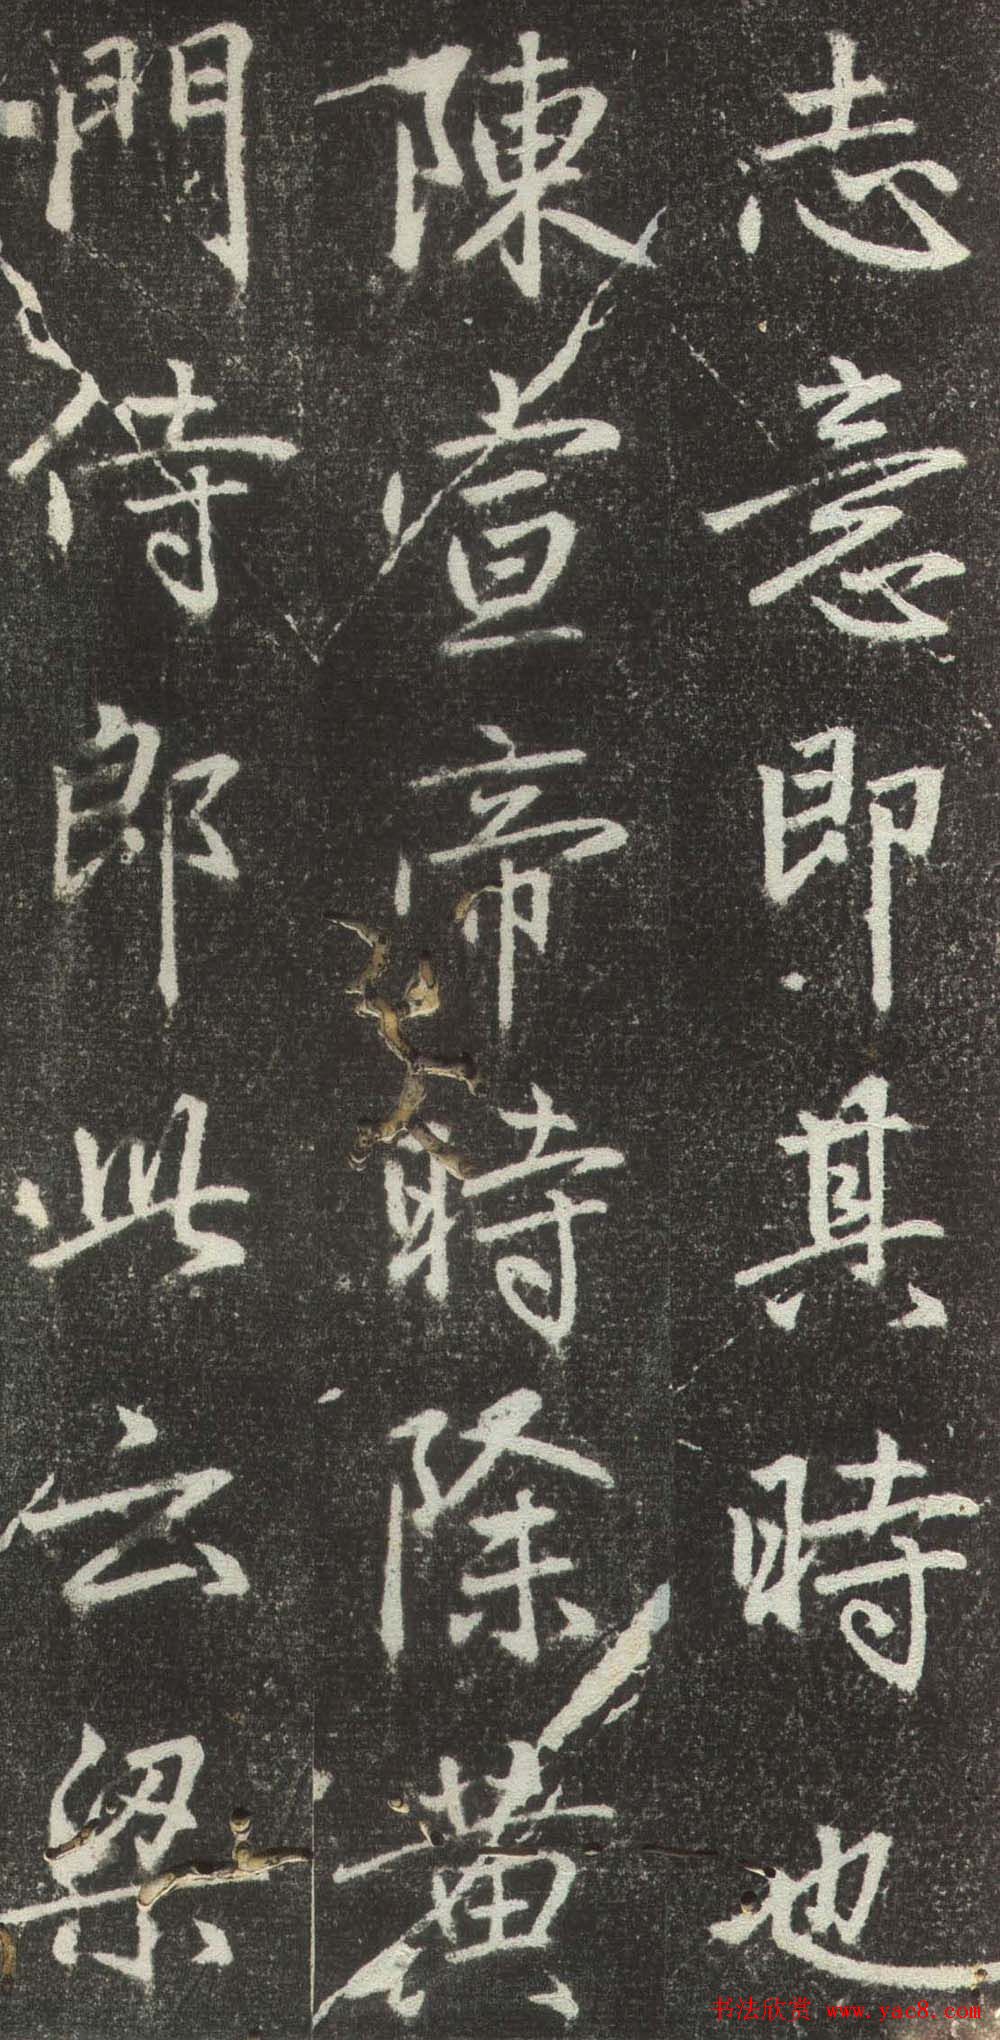 志意即其時也
陳宣帝時除黄
門侍郎此云梁
书法欣赏 www.yac8.com